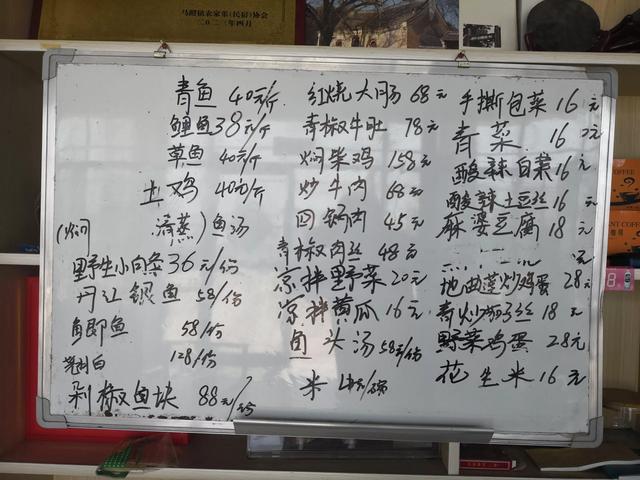 马蹬镇农家乐(民宿)协会
二〇二三年四月
青鱼 40元/斤
鲤鱼38元/斤
草鱼 40元/斤
土鸡 40元/斤
(焖 清蒸)鱼汤
野生小白条 36元/份
丹江银鱼 58/份
角即鱼 58/份
128/份
剁椒鱼块 88元/份
红烧大肠 68元
青椒牛肚 78元
焖柴鸡 158元
炒牛肉 68元
回锅肉 45元
青椒肉丝 48元
凉拌野菜 20元
凉拌黄瓜 16元
鱼头汤 58元/份
米
手撕包菜 16元
青菜 16元
酸辣白菜 16元
酸辣土豆丝 16元
麻婆豆腐 18元
元
地曲莲炒鸡蛋 28元
青炒茄子丝 18元
野菜鸡蛋 28元
花生米 16元
COFFEE
COFFEE